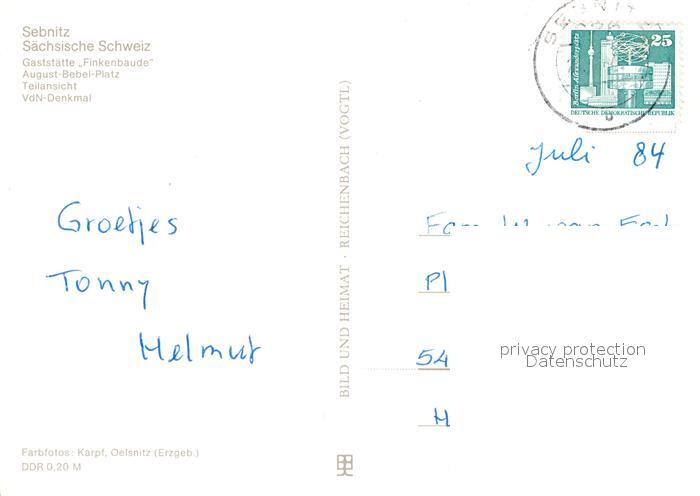 Sebnitz
Sächsische Schweiz
Gaststätte „Finkenbaude"
August-Bebel-Platz
Teilansicht
VdN-Denkmal
25
Berlin-Alexanderplatz
DEUTSCHE DEMOKRATISCHE REPUBLIK
Juli 84
Groetjes
Tonny
Helmut
BILD UND HEIMAT · REICHENBACH (VOGTL)
Pl
54
H
privacy protection
Datenschutz
Farbfotos: Karpf, Oelsnitz (Erzgeb.)
DDR 0,20 M